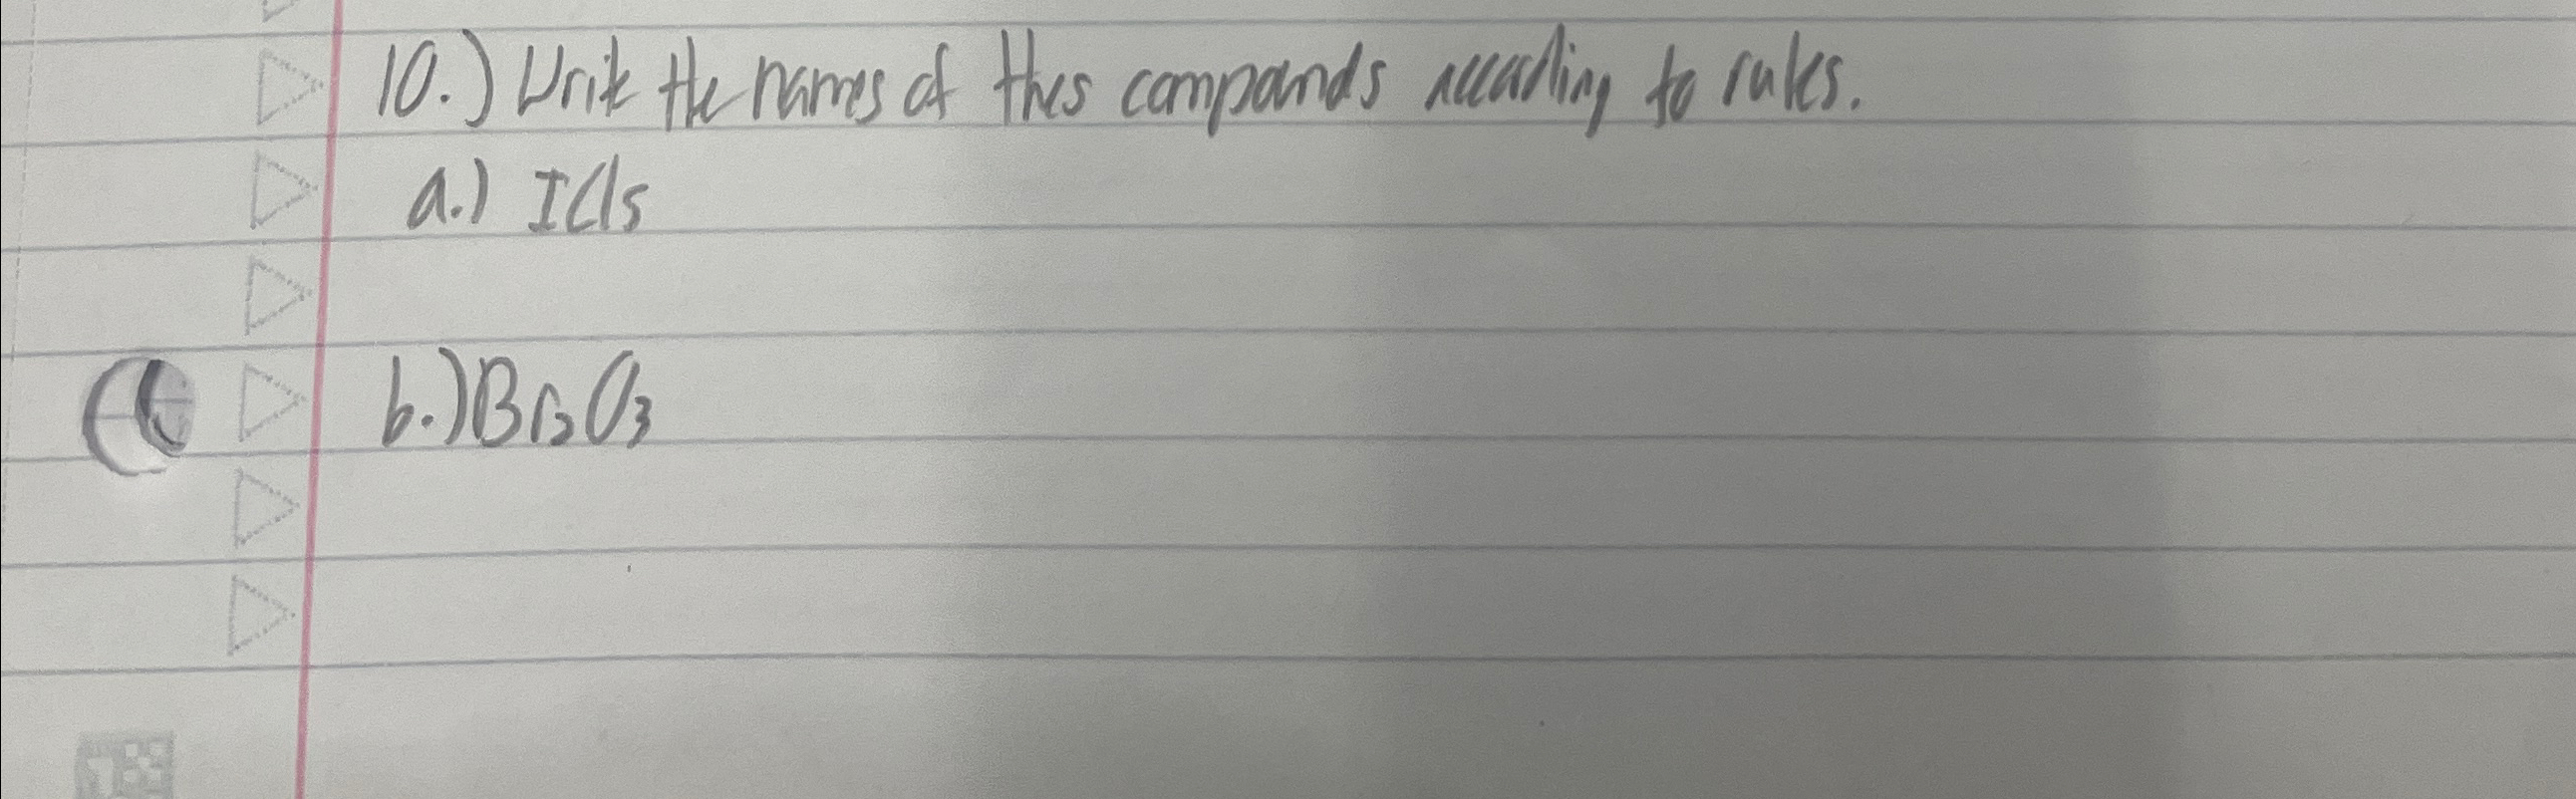 10.) Write the names of thes compands according to rules.
a.) ICl5
b.) Br2O3